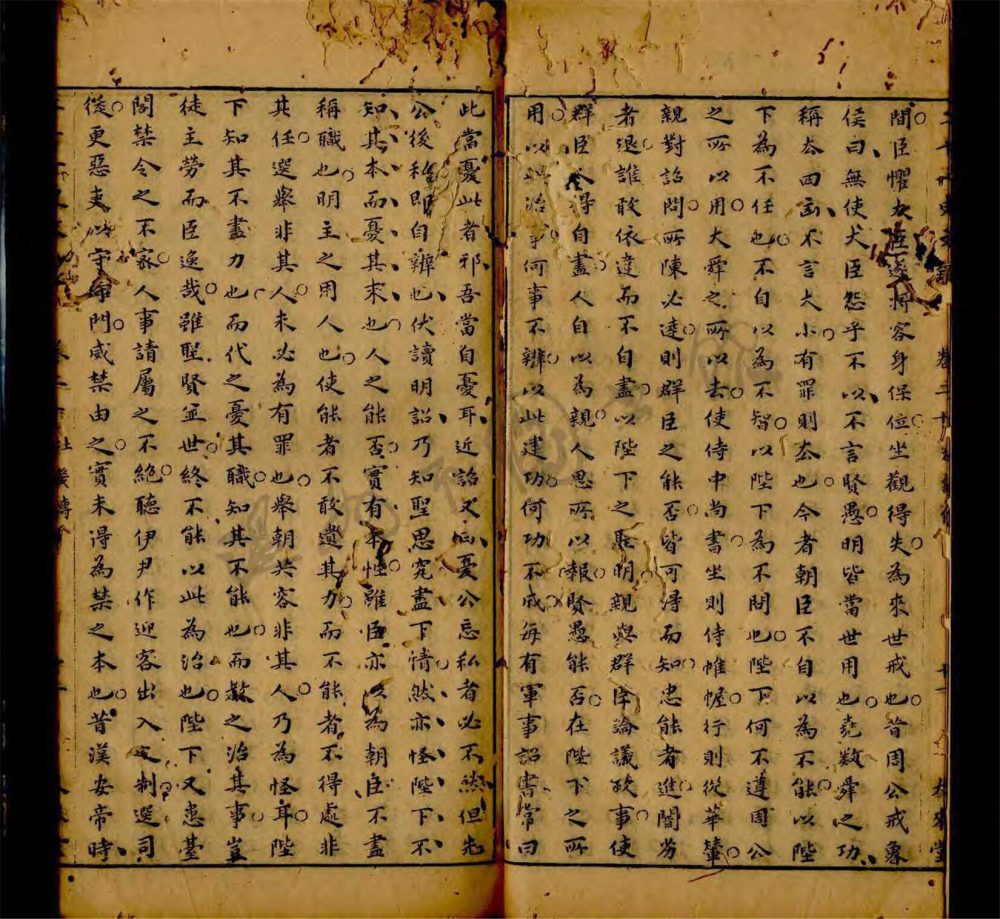 間臣懼大臣遂將容身保位坐觀得失為來世戒也昔周公戒魯
侯曰無使大臣怨乎不以不言賢愚明皆當世用也堯數舜之功
稱去四凶不言大小有罪則去也今者朝臣不自以為不能以陛
下為不任也不自以為不智以陛下為不問也陛下何不遵周公
之所以用大舜之所以去使侍中尚書坐則侍帷幄行則從華輦
親對詔問所陳必達則群臣之能否皆可得而知忠能者進闇劣
者退誰敢依違而不自盡以陛下之聖明親與群臣論議政事使
群臣人得自盡人自以為親人思所以報賢愚能否在陛下之所
用以此治事何事不辨以此建功何功不成每有軍事詔書常曰
此當憂此者邪吾當自憂耳近詔又曰憂公忘私者必不然但先
公後私即自辨也伏讀明詔乃知聖思究盡下情然亦怪陛下不
知其本而憂其末也人之能否實有本性雖臣亦以為朝臣不盡
稱職也明主之用人也使能者不敢遺其力而不能者不得處非
其任選舉非其人未必為有罪也舉朝共容非其人乃為怪耳陛
下知其不盡力也而代之憂其職知其不能也而教之治其事豈
徒主勞而臣逸哉雖聖賢並世終不能以此為治也陛下又患臺
閣禁令之不密人事請屬之不絕聽伊尹作迎客出入之制選司
徒更惡吏以守寺門威禁由之實未得為禁之本也昔漢安帝時